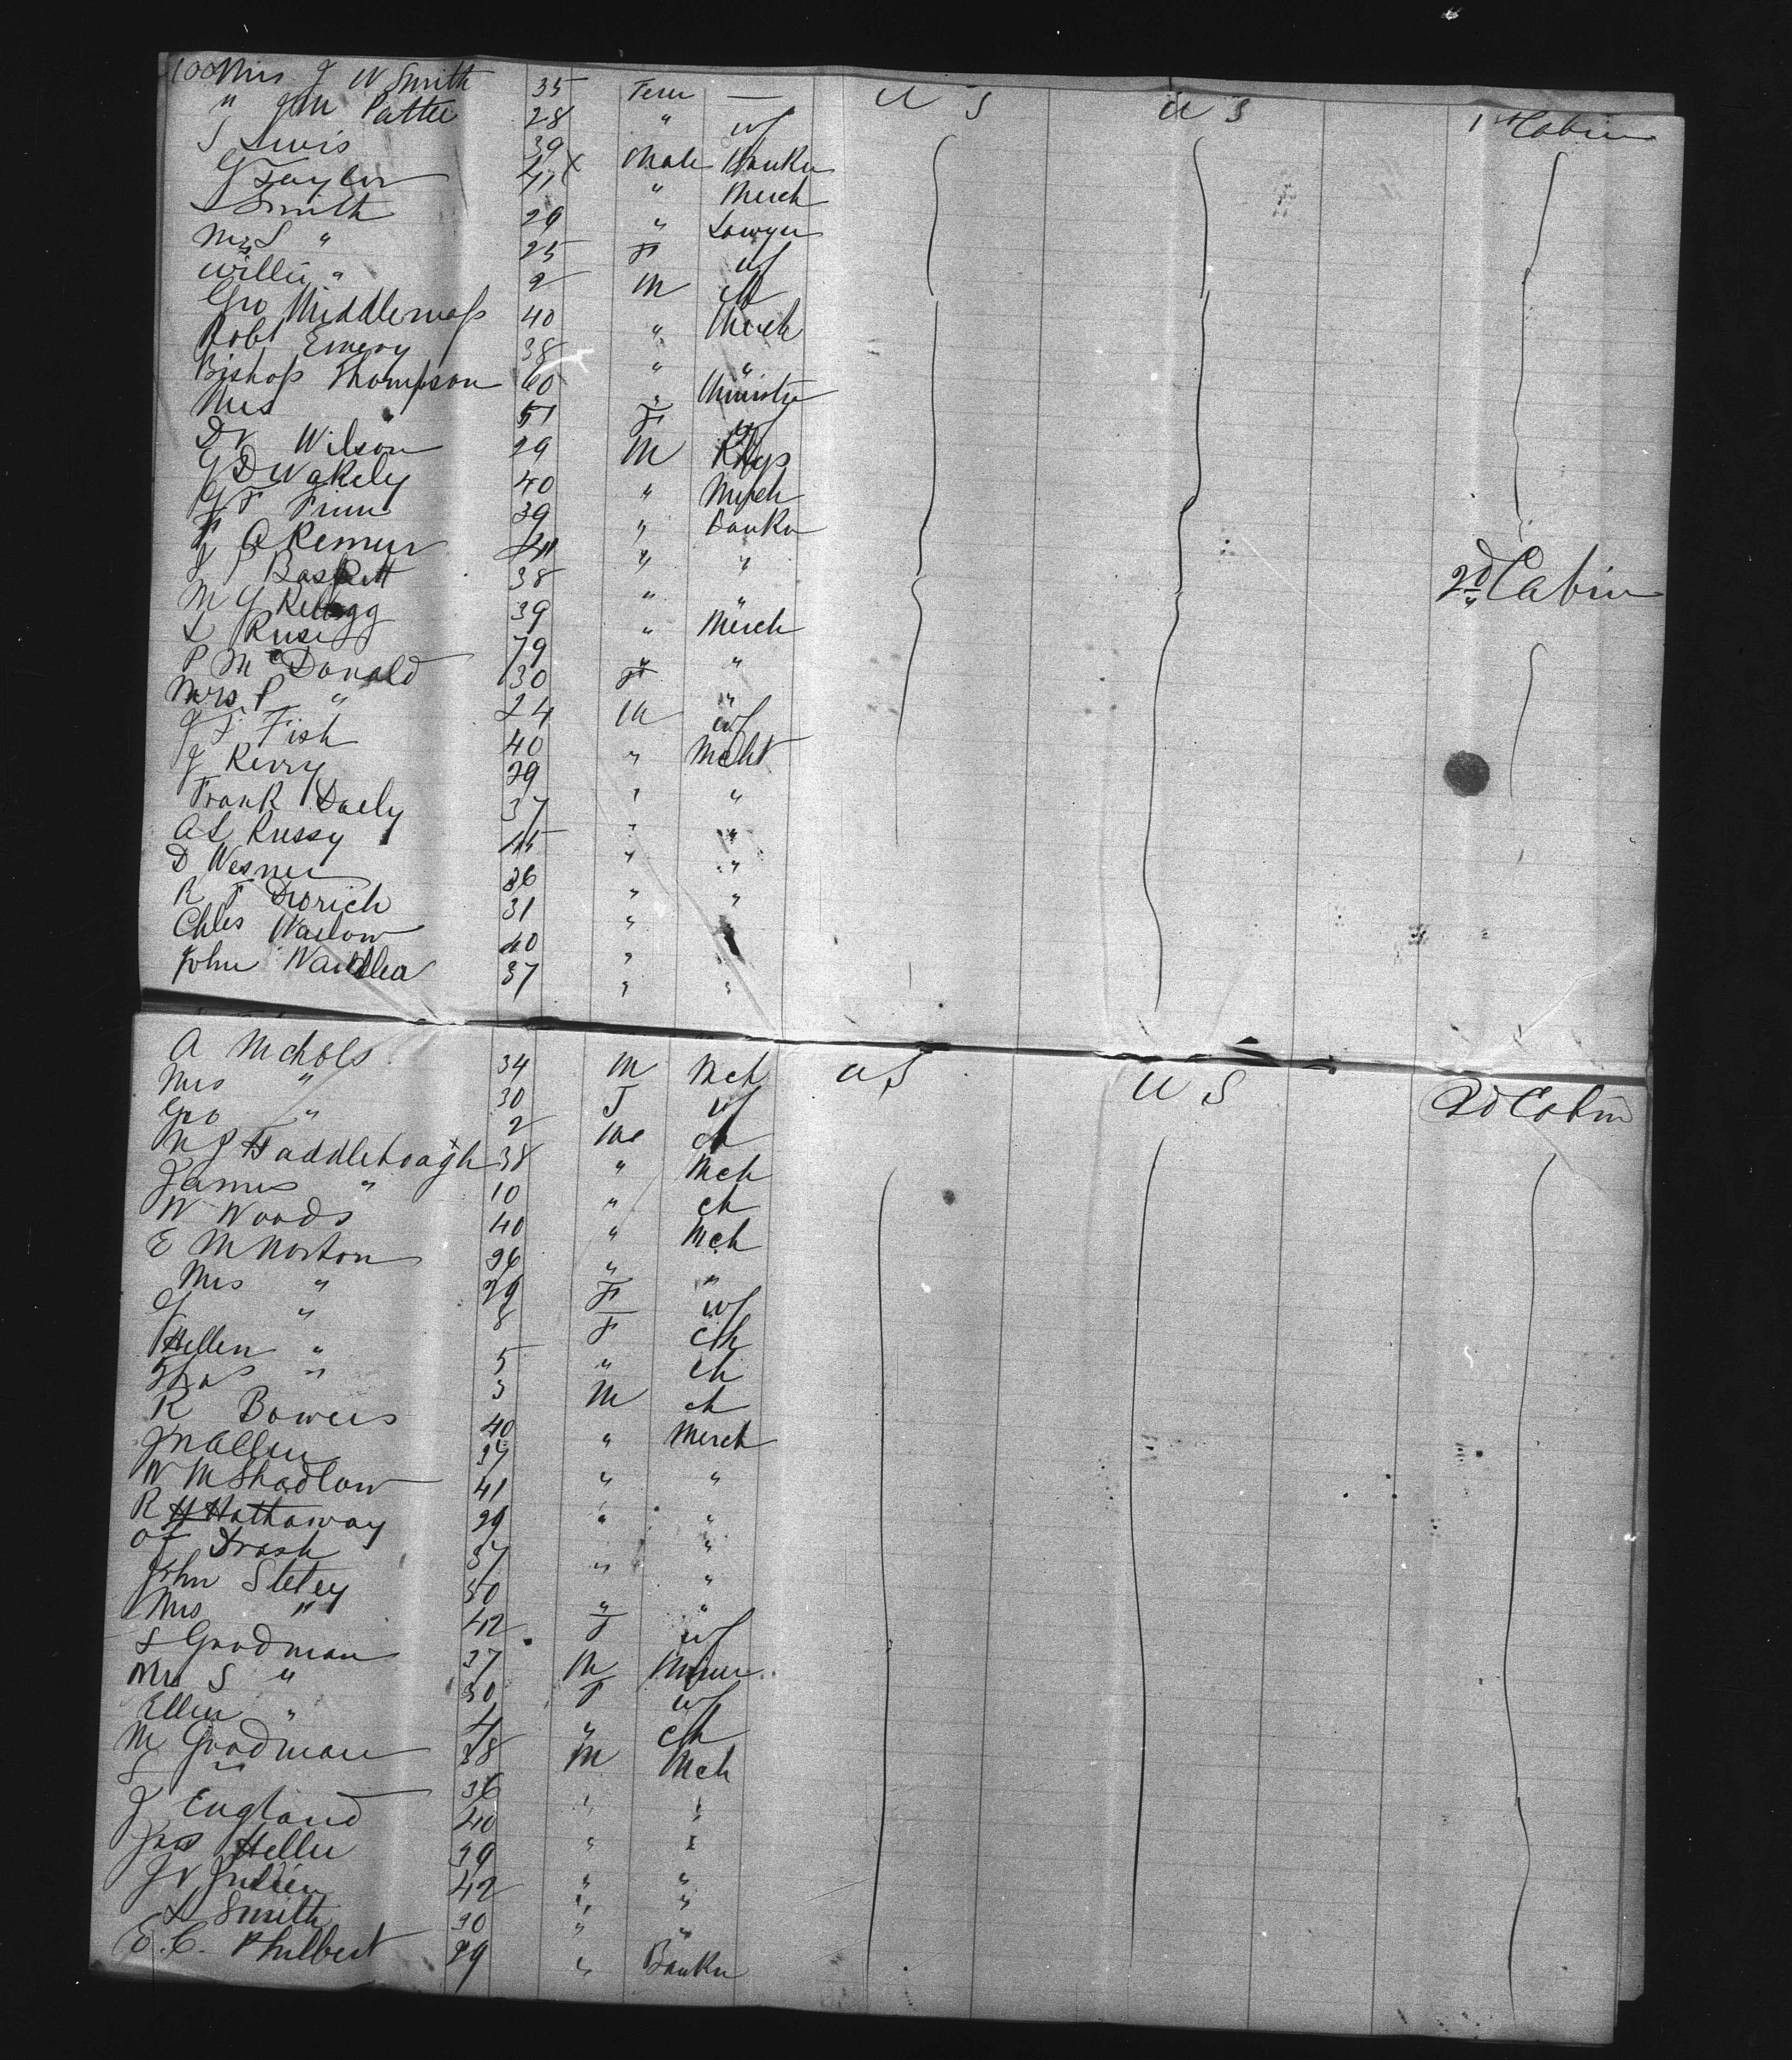 100 Mrs J W Smith 35 Fem — U S U S 1st Cabin
" J M Pattee 28 " wf
S Lewis 39 Male Banker
G Taylor 41 " Merch
S Smith 29 " Lawyer
Mrs S " 25 F wf
Willie " 2 M ch
Geo Middlemass 40 " Merch
Robt Emery 38 " "
Bishop Thompson 60 " Minister
Mrs 51 F wf
Dr Wilson 29 M Phys
G D Wakely 40 " Merch
G F Finn 39 " Banker
F A Remur 41 " "
J P Baskett 38 " " 2d Cabin
M G Kellogg 39 " Merch
L Ruse 79 " "
P McDonald 30 F "
Mrs P " 24 M wf
J F Fish 40 " Mcht
J Kerry 29 " "
Frank Daely 37 " "
A L Russy 45 " "
D Wesner 26 " "
R F Drorich 31 "
Chles Waelow 40 " "
John Wardler 37 " "
A Nichols 34 M Mch U S U S 2d Cabin
Mrs " 30 F wf
Geo " 2 M ch
M J Faddlehoagh 38 " Mch
James " 10 " ch
W Woods 40 " Mch
E M Norton 26 " "
Mrs " 29 F wf
G " 8 F ch
Hellen " 5 " ch
Thos " 3 M ch
R Bowers 40 " Merch
J N Allen 37 " "
W M Shadlow 41 " "
R H Hathaway 29 " "
O F Drash 37 " "
John Stetey 50 " "
Mrs " 42 F wf
S Goodman 37 M Miner
Mrs S " 30 F wf
Ellen " 4 " ch
M Goodman 38 M Mch
S " 36 " "
J England 40 " "
Jas Heller 39 " "
J V Julien 42 " "
L Smith 30 " "
E. C. Philbert 29 " Banker